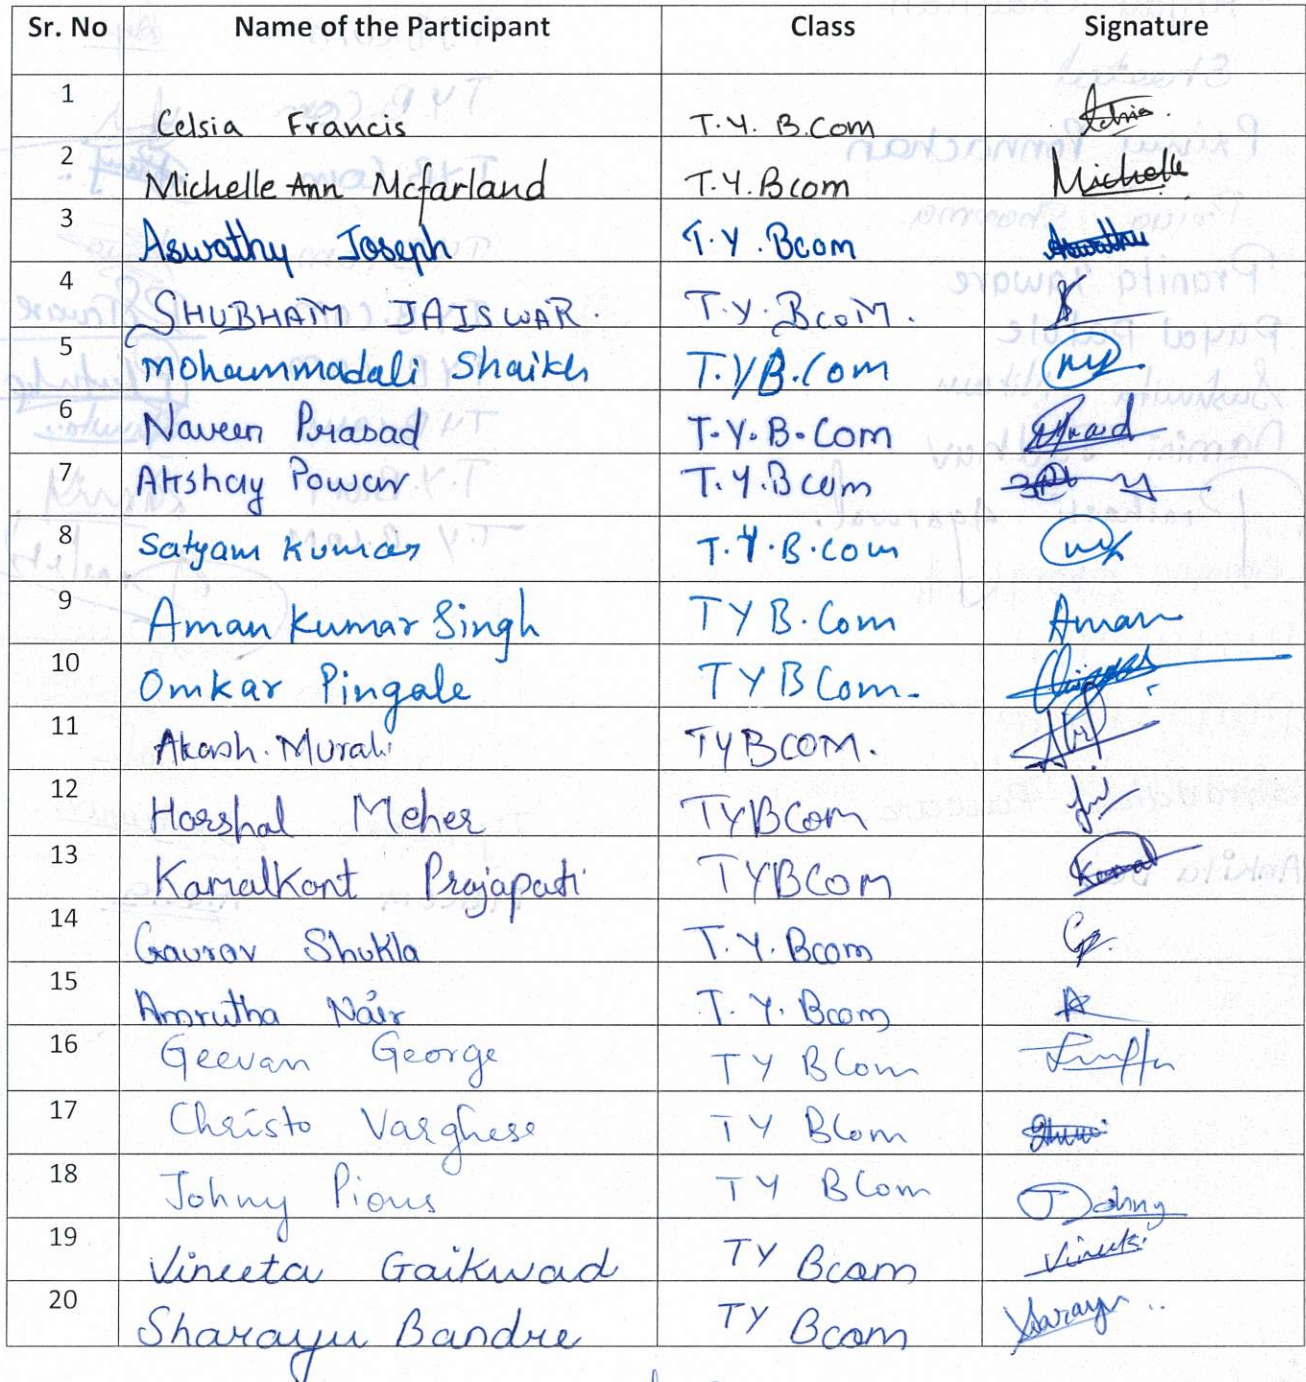 Sr. No Name of the Participant Class Signature
1 Celsia Francis T.Y. B.Com
2 Michelle Ann Mcfarland T.Y.Bcom Michelle
3 Aswathy Joseph T.Y.Bcom Aswathy
4 SHUBHAM JAISWAR. T.Y.BcoM.
5 Mohammadali Shaikh T.Y B.Com
6 Naveen Prasad T.Y.B.Com
7 Akshay Powar T.Y.Bcom
8 Satyam Kumar T.Y.B.com
9 Aman Kumar Singh TY B.Com Aman
10 Omkar Pingale TY BCom.
11 Akash.Murali TYBCOM.
12 Harshal Meher TYBCom
13 KamalKant Prajapati TYBCom Kamal
14 Gaurav Shukla T.Y.Bcom
15 Amrutha Nair T.Y.Bcom A
16 Geevan George TY BCom
17 Christo Varghese TY BCom
18 Johny Pious TY BCom Johny
19 Vineeta Gaikwad TY Bcom
20 Sharayu Bandre TY Bcom Sharayu